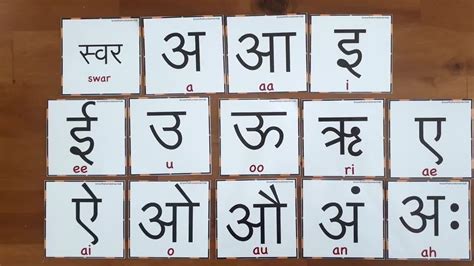 स्वर अ आ इ
swar a aa i
ई उ ऊ ऋ ए
ee u oo ri ae
ऐ ओ औ अं अः
ai o au an ah